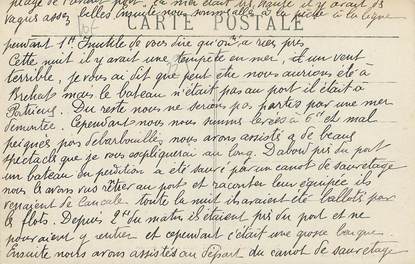 plage de l'avant port, la mer était très haute il y avait des
vagues assez belles ensuite nous sommes allés à la pêche à la ligne
CARTE POSTALE
pendant 1h Inutile de vous dire qu'on n'a rien pris
Cette nuit il y avait une tempête en mer, il un vent
terrible, je vous ai dit que peut être nous aurions été à
Brehat mais le bateau n'était pas au port il était à
Portrieux. Du reste nous ne serions pas parties par une mer
démontée. Cependant nous nous sommes levées à 6h et mal
peignées pas débarbouillées nous avons assistés a de beaux
spectacles que je vous expliquerai au long. D'abord près du port
un bateau en perdition a été sauvé par un canot de sauvetage
nous l'avons vus rentrer au port et raconter leur équipée ils
venaient de Cancale toute la nuit ils avaient été ballotés par
les flots. Depuis 2h du matin ils étaient près du port et ne
pouvaient y entrer et cependant c'était une grosse barque
Ensuite nous avons assistés au départ du canot de sauvetage